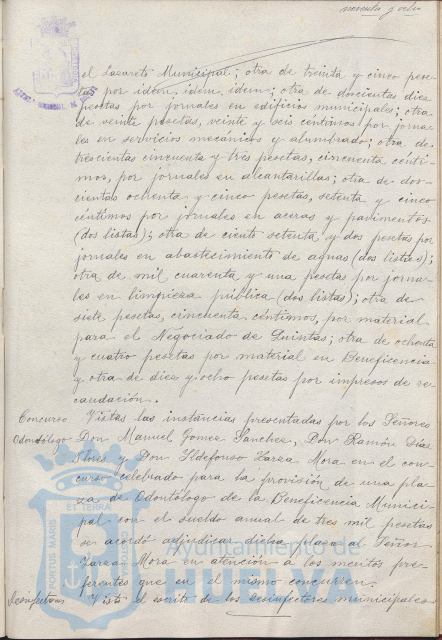 noventa y ocho
el Lazareto Municipal; otra de treinta y cinco pese-
tas por idem, idem, idem; otra de doscientas diez
pesetas por jornales en edificios municipales; otra
de veinte pesetas, veinte y seis céntimos por jorna-
les en servicios mecánicos y alumbrado; otra de
trescientas cincuenta y tres pesetas, cincuenta cénti-
mos, por jornales en alcantarillas; otra de dos-
cientas ochenta y cinco pesetas, setenta y cinco
céntimos por jornales en aceras y pavimentos
(dos listas); otra de ciento setenta y dos pesetas por
jornales en abastecimiento de aguas (dos listas);
otra de mil cuarenta y una pesetas por jorna-
les en limpieza pública (dos listas); otra de
siete pesetas, cincuenta céntimos, por material
para el Negociado de Quintas; otra de ochenta
y cuatro pesetas por material en Beneficencia
y otra de diez y ocho pesetas por impresos de re-
caudación.
Concurso Vistas las instancias presentadas por los Señores
Odontólogo Don Manuel Gomez Sanchez, Don Ramón Díaz
Flores y Don Ildefonso Zarza Mora en el con-
curso celebrado para la provisión de una pla-
za de Odontólogo de la Beneficencia Munici-
pal con el sueldo anual de tres mil pesetas
se acordó adjudicar dicha plaza al Señor
Zarza Mora en atención a los meritos pre-
ferentes que en el mismo concurren.
Desinfectores Visto el escrito de los desinfectores municipales
PORTUS MARIS ET TERRAE
Ayuntamiento de
HUELVA